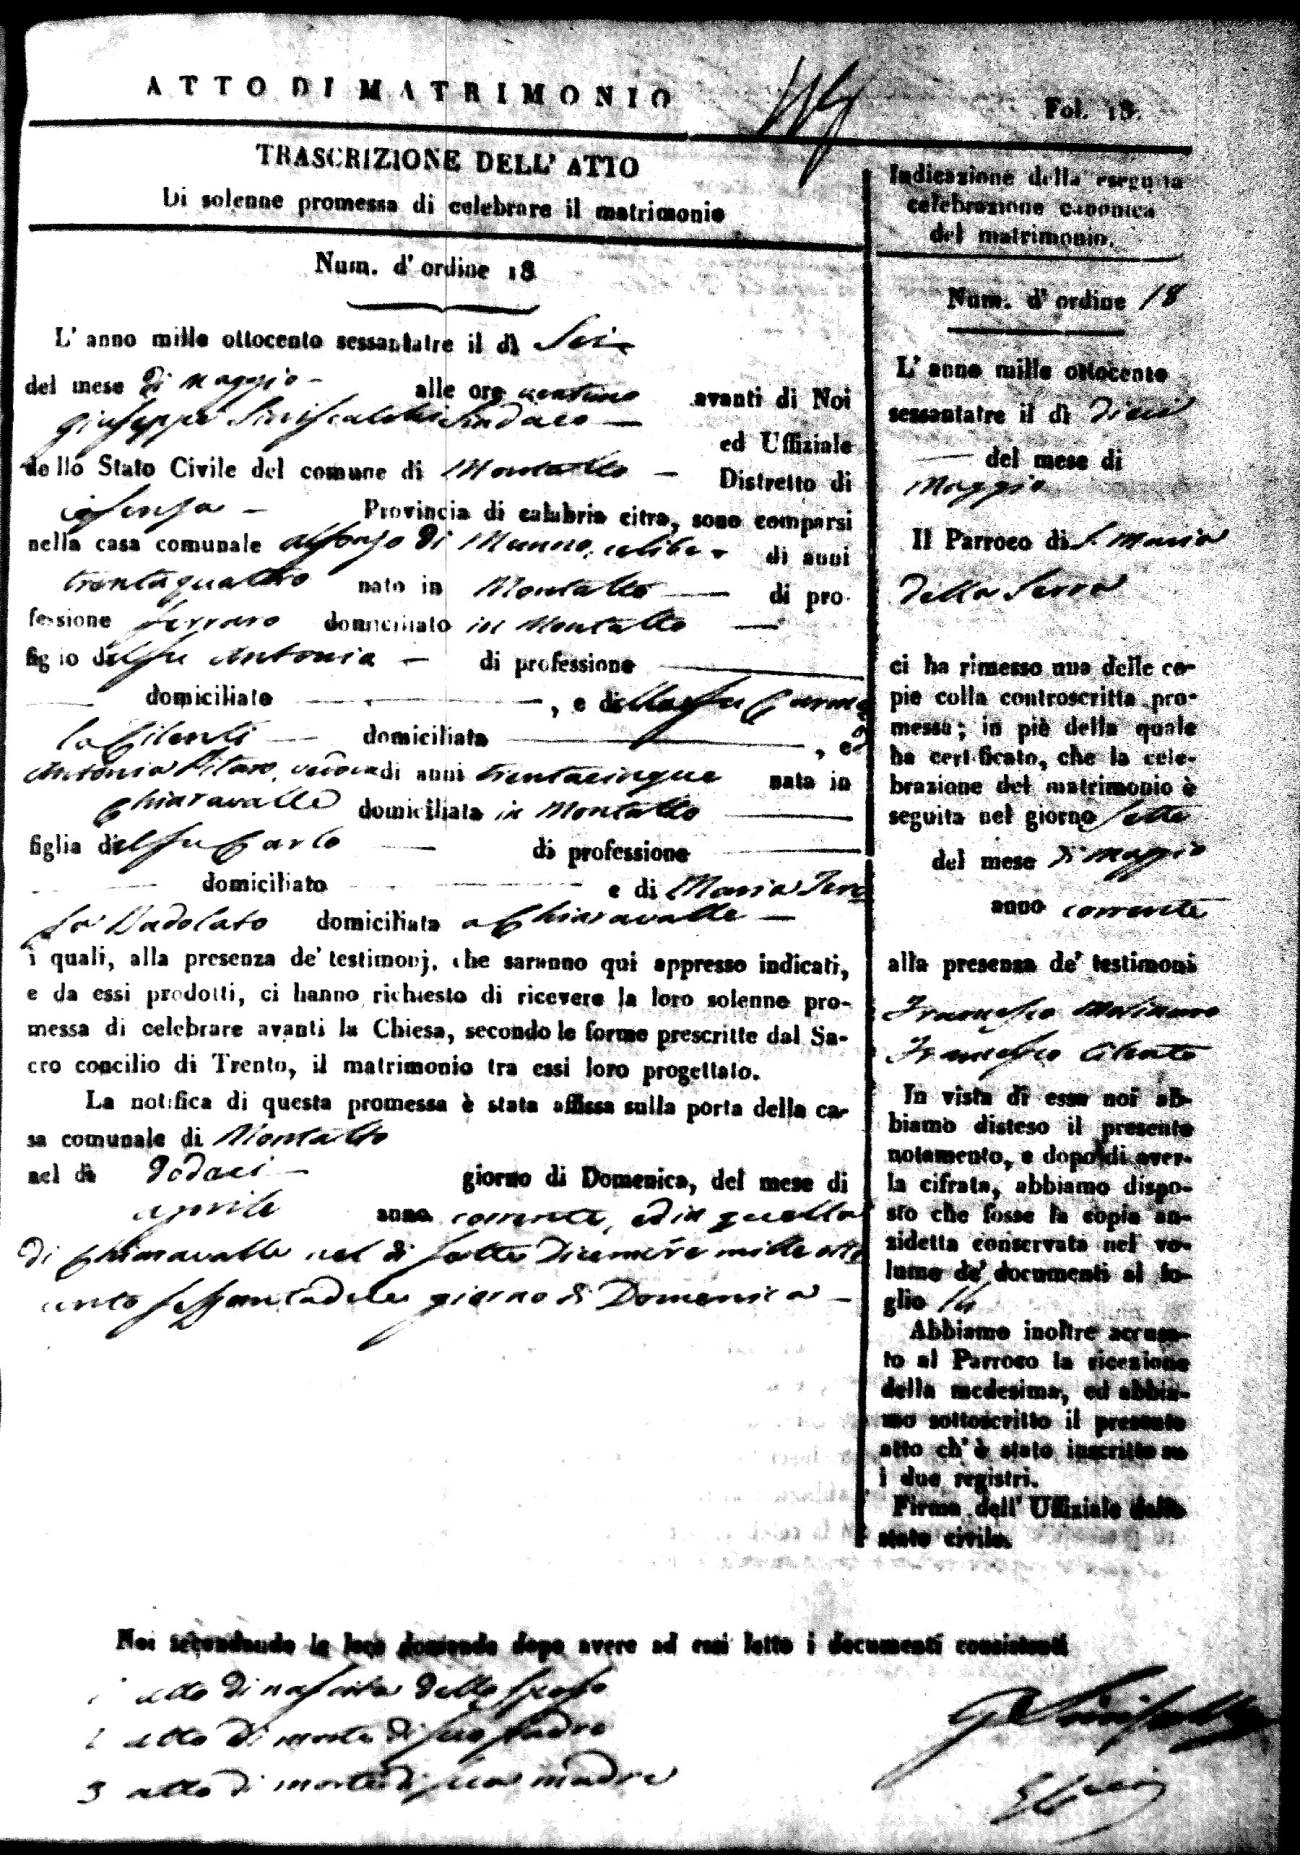 ATTO DI MATRIMONIO
Fol. 18.
TRASCRIZIONE DELL' ATTO
Di solenne promessa di celebrare il matrimonio
Num. d' ordine 18
L' anno mille ottocento sessantatre il dì Sei
del mese di Maggio alle ore ventuno avanti di Noi
Giuseppe Siniscalchi Sindaco ed Uffiziale
dello Stato Civile del comune di Montalto Distretto di
Cosenza Provincia di calabria citra, sono comparsi
nella casa comunale Alfonso di Munno, celibe di anni
trentaquattro nato in Montalto di pro-
fessione ferraro domiciliato in Montalto
figlio del fu Antonia di professione
domiciliato , e di della fu Carme
la Cilenti domiciliata , ed
Antonia Pitaro, vedova di anni trentacinque nata in
Chiaravalle domiciliata in Montalto
figlia del fu Carlo di professione
domiciliato e di Maria Tere
sa Badolato domiciliata a Chiaravalle
i quali, alla presenza de' testimonj, che saranno qui appresso indicati,
e da essi prodotti, ci hanno richiesto di ricevere la loro solenne pro-
messa di celebrare avanti la Chiesa, secondo le forme prescritte dal Sa-
cro concilio di Trento, il matrimonio tra essi loro progettato.
La notifica di questa promessa è stata affissa sulla porta della ca-
sa comunale di Montalto
nel dì dodaci giorno di Domenica, del mese di
aprile anno corrente, ed in quella
di Chiaravalle nel dì sette Dicembre mille otto
cento sessantadue giorno di Domenica
Indicazione della eseguita
celebrazione canonica
del matrimonio.
Num. d' ordine 18
L' anno mille ottocento
sessantatre il dì dieci
del mese di
Maggio
Il Parroco di S. Maria
della Serra
ci ha rimesso una delle co-
pie colla controscritta pro-
messa; in piè della quale
ha certificato, che la cele-
brazione del matrimonio è
seguita nel giorno sette
del mese di Maggio
anno corrente
alla presenza de' testimoni
Francesco Molinaro
Francesco
In vista di essa noi ab-
biamo disteso il presente
notamento, e dopo di aver-
la cifrata, abbiamo dispo-
sto che fosse la copia an-
zidetta conservata nel vo-
lume de' documenti al fo-
glio 14
Abbiamo inoltre accusa-
to al Parroco la ricezione
della medesima, ed abbia-
mo sottoscritto il presente
atto ch' è stato inscritto su
i due registri.
Firma dell' Uffiziale dello
stato civile.
Noi secondando la loro domanda dopo avere ad essi letto i documenti consistenti
1 atto di nascita dello sposo
2 atto di morte di suo padre
3 atto di morte di sua madre
G Siniscalchi